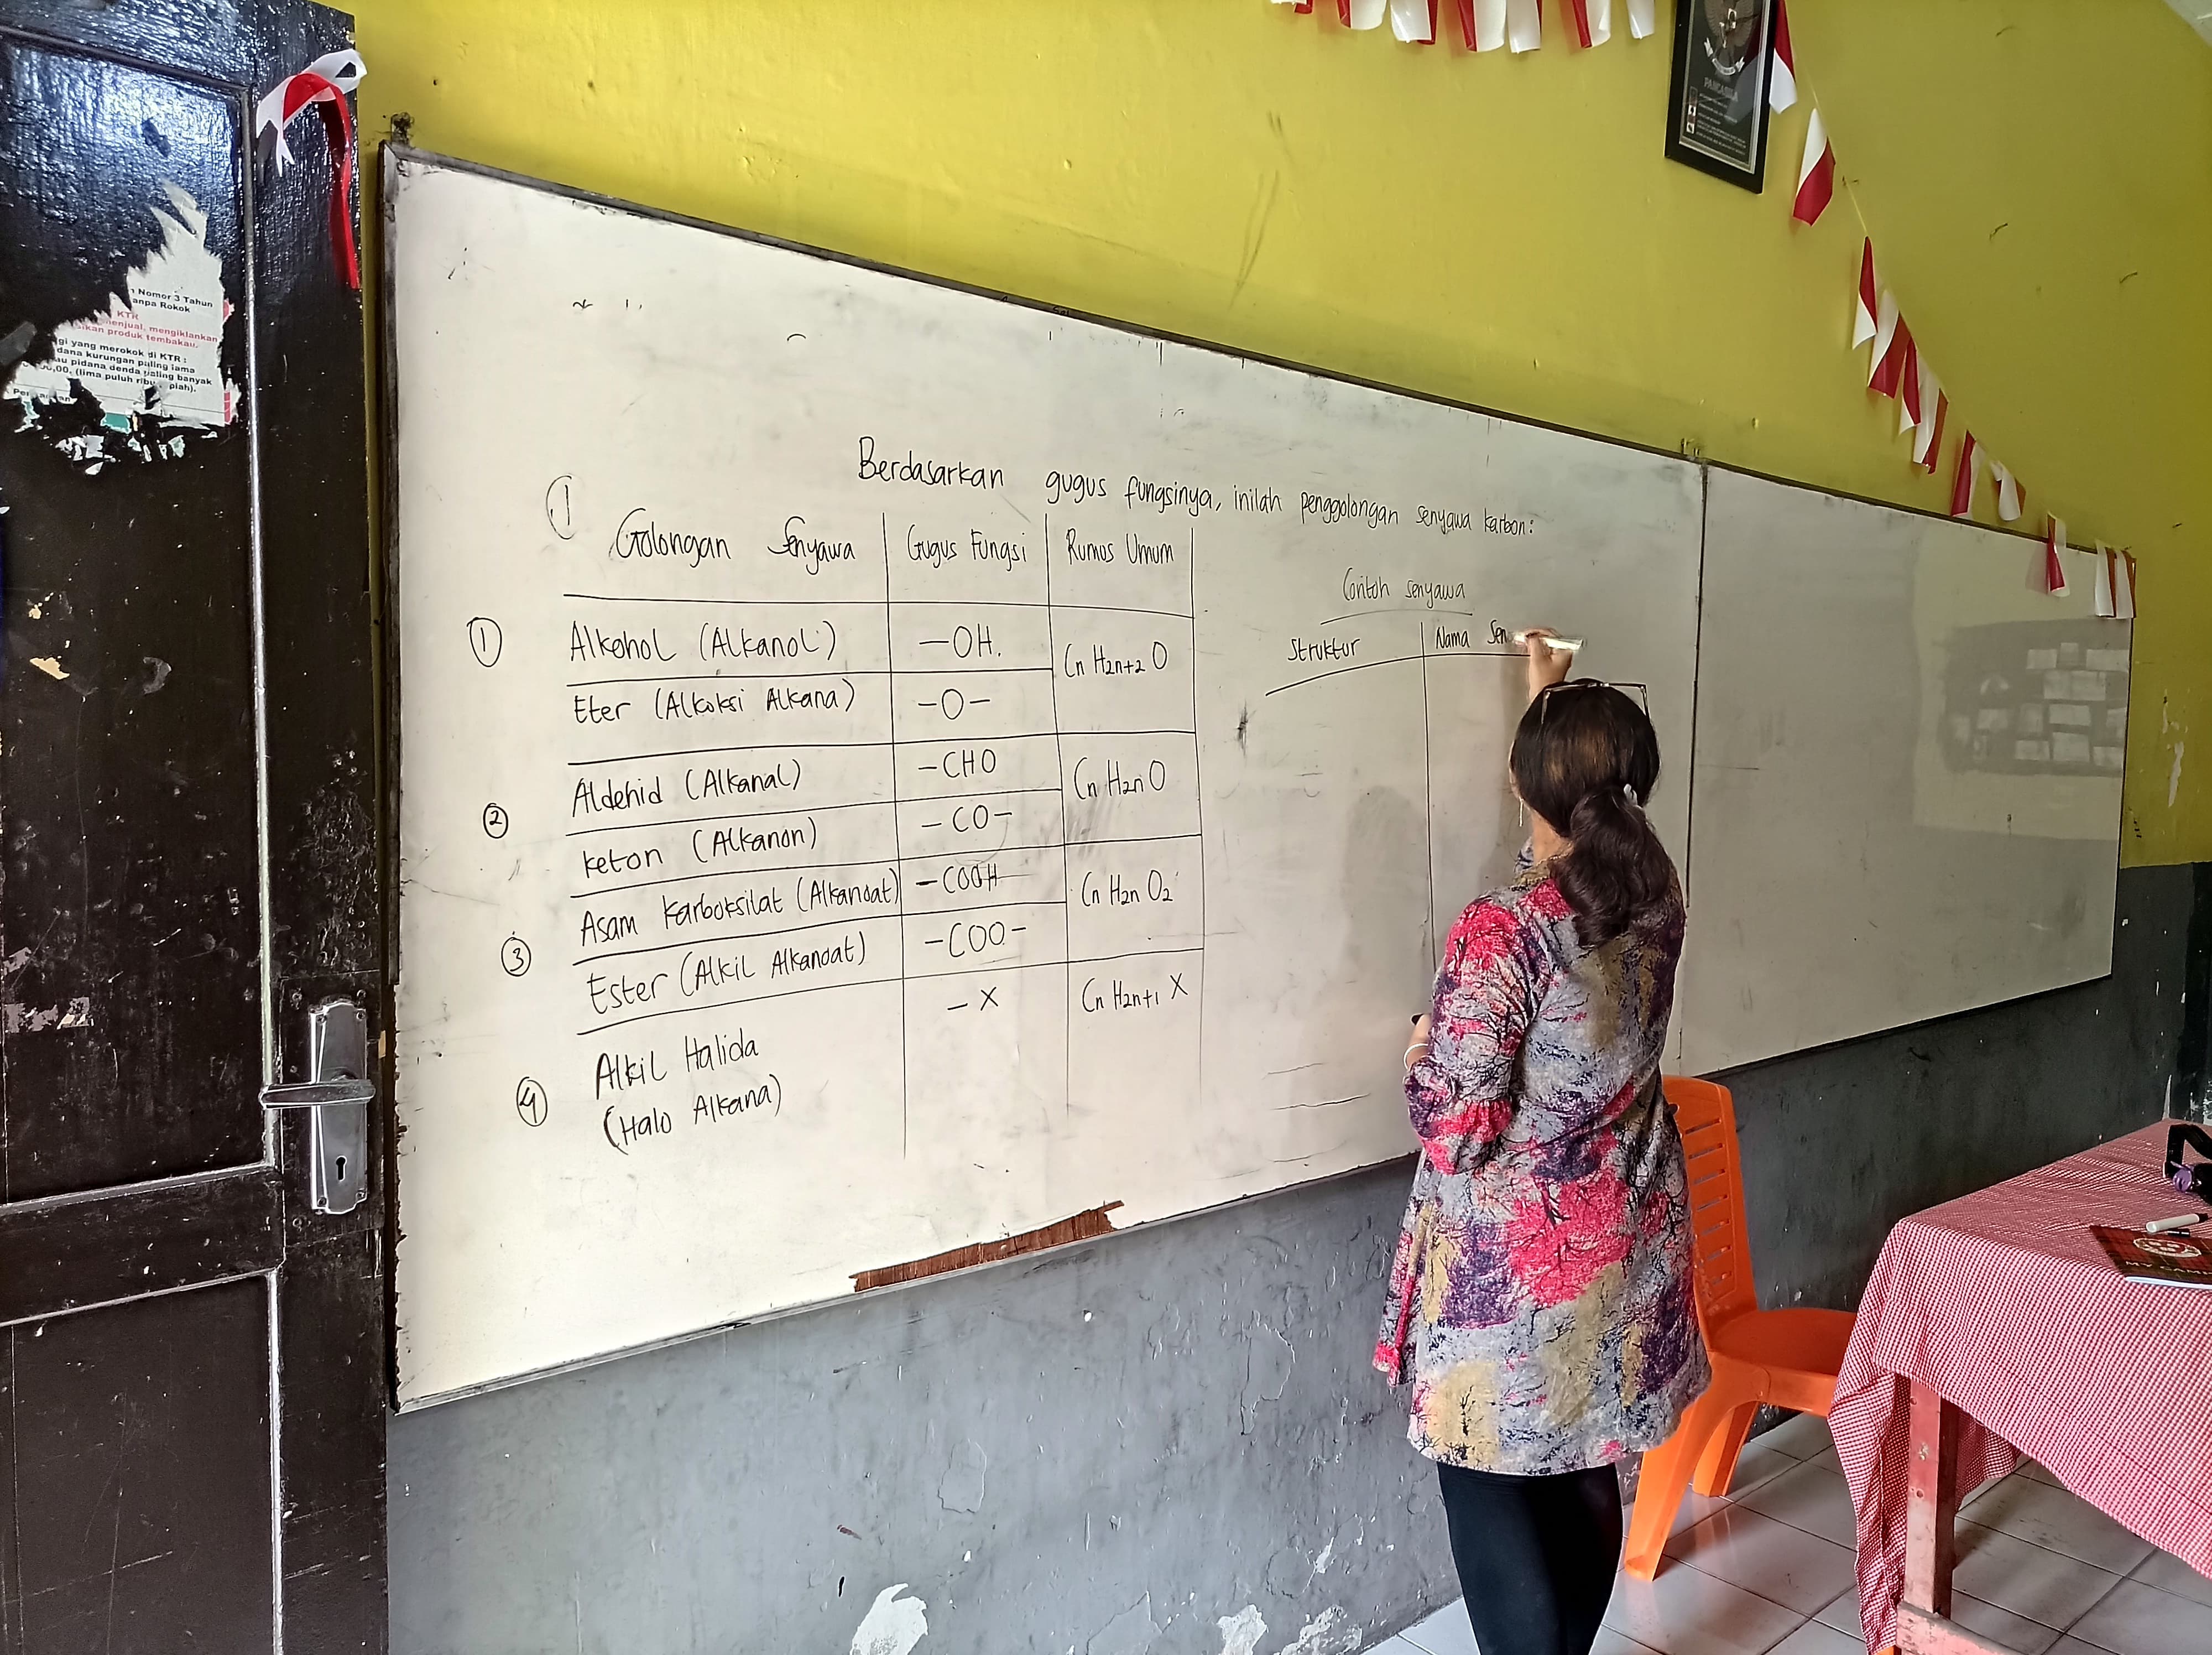 Nomor 3 Tahun
anpa Rokok
KTR
menjual, mengiklankan
ikan produk tembakau.
gi yang merokok di KTR :
dana kurungan paling lama
au pidana denda paling banyak
00,00. (lima puluh ribu piah).
PANCASILA
Berdasarkan gugus fungsinya, inilah penggolongan senyawa karbon:
①
Golongan Senyawa Gugus Fungsi Rumus Umum
① Alkohol (Alkanol) -OH. CnH2n+2O
Eter (Alkoksi Alkana) -O-
② Aldehid (Alkanal) -CHO CnH2nO
keton (Alkanon) -CO-
Asam karboksilat (Alkanoat) -COOH CnH2nO2
③ Ester (Alkil Alkanoat) -COO-
④ Alkil Halida -X CnH2n+1X
(Halo Alkana)
Contoh senyawa
Struktur Nama Sen